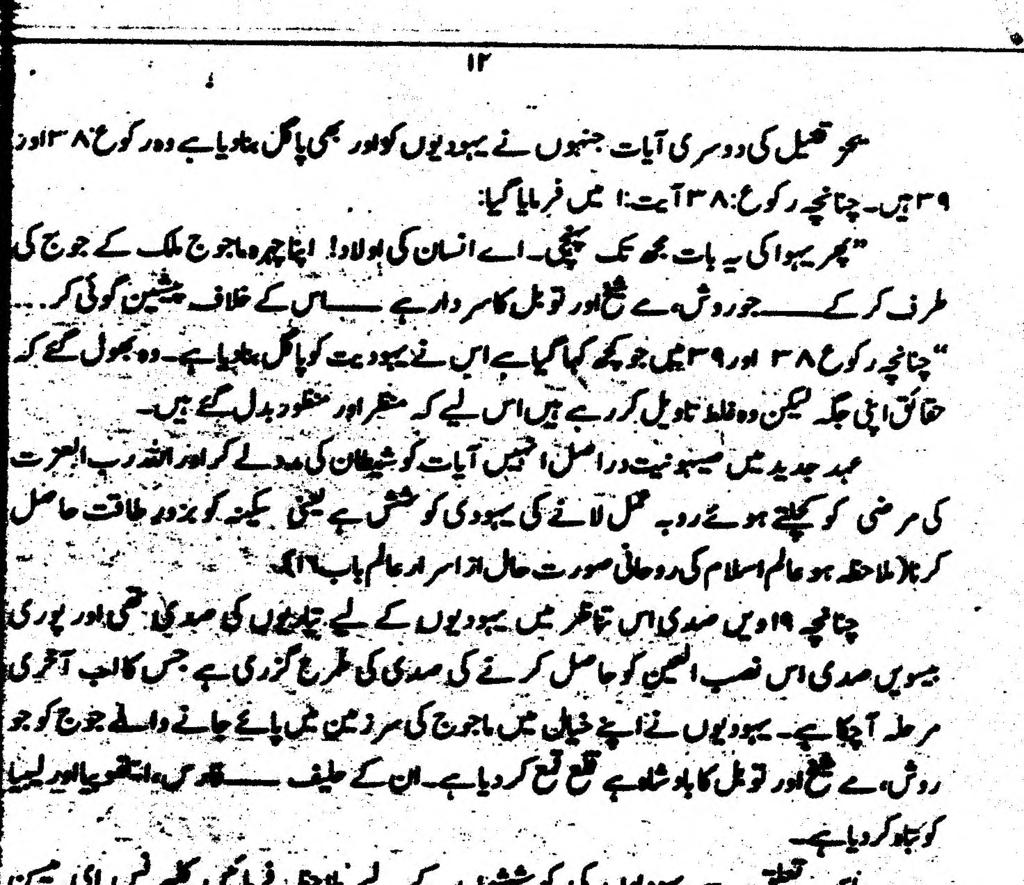 ۱۲
حزقیل کی دوسری آیات جنہوں نے یہودیوں کو اور بھی پاگل بنادیا ہے وہ رکوع:۳۸ اور
۳۹ ہیں۔ چنانچہ رکوع:۳۸ آیت:۱ میں فرمایا گیا:
”پھر یہوا کی یہ بات مجھ تک پہنچی۔ اے انسان کی اولاد! اپنا چہرہ ماجوج ملک کے جوج کی
طرف کر کے ــــــ جو روش، مے شیخ اور توبل کا سردار ہے ــــــ اس کے خلاف پیشین گوئی کر ....
“چنانچہ رکوع ۳۸ اور ۳۹ میں جو کچھ کہا گیا ہے اس نے یہودیت کو پاگل بنادیا ہے۔ وہ بھول گئے کہ
حقائق اپنی جگہ لیکن وہ غلط تاویل کر رہے ہیں اس لیے کہ منظر اور منظور بدل گئے ہیں۔
عہد جدید میں صیہونیت دراصل انہیں آیات کو شیطان کی مدد لے کر اور اللہ رب العزت
کی مرضی کو کچلتے ہوئے روبہ عمل لانے کی یہودی کوشش ہے یعنی سکینہ کو بزور طاقت حاصل
کرنا (ملاحظہ ہو عالم اسلام کی روحانی صورت حال از اسرار عالم باب ۱۶)۔
چنانچہ ۱۹ویں صدی اس تناظر میں یہودیوں کے لیے تیاریوں کی صدی تھی اور پوری
بیسویں صدی اس نصب العین کو حاصل کرنے کی صدی کی طرح گزری ہے جس کا اب آخری
مرحلہ آچکا ہے۔ یہودیوں نے اپنے خیال میں ماجوج کی سرزمین میں پائے جانے والے جوج کو جو
روش، مے شیخ اور توبل کا بادشاہ ہے قلع قمع کر دیا ہے۔ ان کے حلیف ــــــ فارس، ایتھوپیا اور لیبیا
کو تباہ کر دیا ہے۔